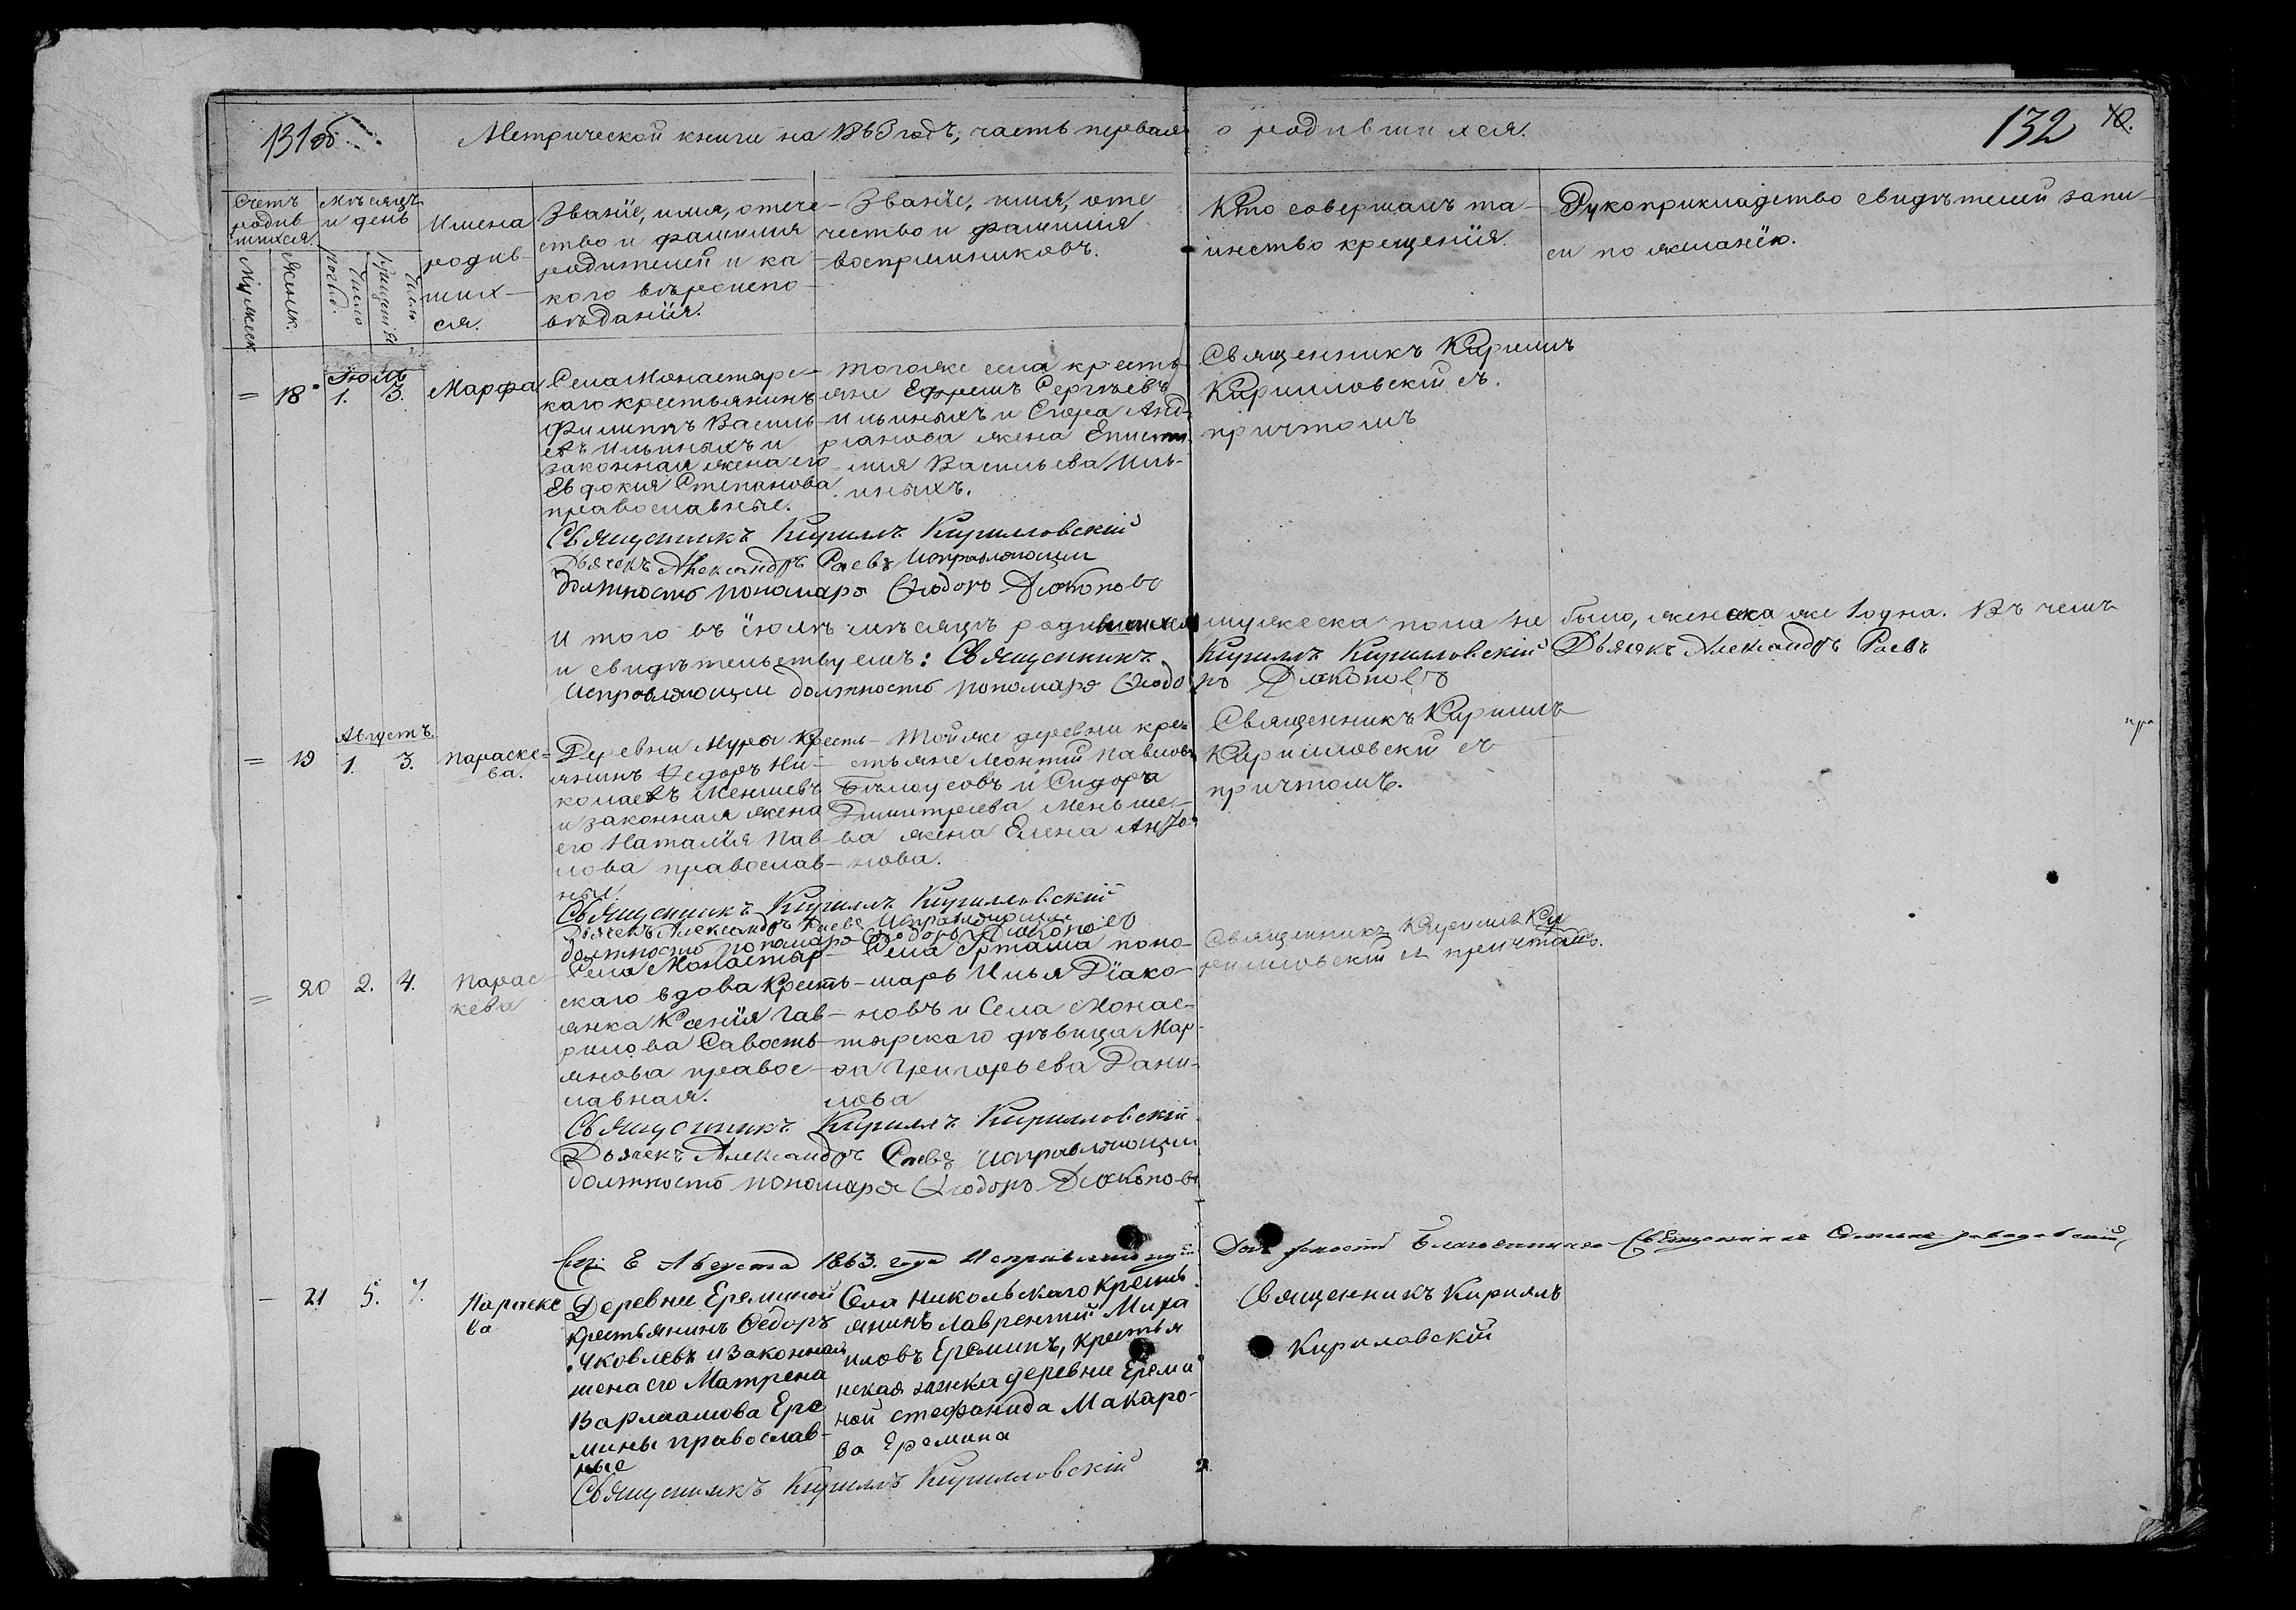 131об
Метрической книги на 1863 годъ, часть первая о родившихся.
132
Счетъ родив-шихся.
Мужеск.
Женск.
Мѣсяцъ и день
Число рожд.
Число крещенія
Имена
родив-
ших-
ся.
Званіе, имя, отече-
ство и фамилия
родителей и ка-
кого вѣроиспо-
вѣданія.
Званіе, имя, оте
чество и фамилія
воспріемниковъ.
Кто совершалъ та-
инство крещенія.
Рукоприкладство свидѣтелей запи-
си по желанію.
Іюль
=
18
1.
3.
Марфа
Села Монастырс-
каго крестьянинъ
Филиппъ Василь-
евъ Ильиныхъ и
законная жена его
Евдокия Степанова
православные.
Тогоже села кресть-
яне Ефремъ Сергѣевъ
Ильиныхъ и Егора Анд-
риянова жена Еписти-
мия Васильева Иль-
иныхъ.
Священникъ Кириллъ
Кирилловскій съ
причтомъ
Священникъ Кириллъ Кирилловскій
Дьячекъ Александръ Раевъ Исправляющій
должность пономаря Ѳеодоръ Дьяконовъ
Итого въ іюлѣ мѣсяцѣ родившихся мужеска пола не было, женска же 1 одна. Въ чемъ
и свидѣтельствуемъ: Священникъ Кириллъ Кирилловскій Дьячекъ Александръ Раевъ
Исправляющій должность пономаря Ѳеодоръ Дьяконовъ
Августъ.
=
19
1.
3.
Параске-
ва.
Деревни Муры Кресть-
янинъ Ѳедоръ Ни-
колаевъ Меншевъ
и законная жена
его Наталія Пав-
лова православ-
ные.
Тойже деревни кре-
стьяне Леонтий Павловъ
Бѣлоусовъ и Сидора
Димитриева Меньше-
ва жена Елена Анто-
нова.
Священникъ Кириллъ
Кирилловскій съ
причтомъ.
Священникъ Кириллъ Кирилловскій
Дьячекъ Александръ Раевъ Исправляющій
должность пономаря Ѳеодоръ Дьяконовъ
=
20
2.
4.
Парас-
кева
Села Монастыр-
скаго вдова Кресть-
янка Ксенія Гав-
рилова Савость-
янова правос-
лавная.
Села Грташа поно-
марь Илья Діако-
новъ и Села Монас-
тырскаго дѣвица Мар-
ѳа Григорьева Дани-
лова
Священникъ Кириллъ Ки
рилловскій съ причтомъ.
Священникъ Кириллъ Кирилловскій
Дьячекъ Александръ Раевъ Исправляющій
должность пономаря Ѳеодоръ Дьяконовъ
Августа 1863. года Исправляющій Должность Благочиннаго Священникъ
–
21
5.
7.
Параске
ва
Деревни Ереминой
крестьянинъ Ѳедоръ
Яковлевъ и законная
жена его Матрена
Варлаамова Ере
мины православ-
ные
Села Никольскаго кресть
янинъ Лаврентій Миха
иловъ Ереминъ, крестья
нская жинка деревни Ереми
ной Стефанида Макаро-
ва Еремина
Священникъ Кириллъ
Кириловскій
Священникъ Кириллъ Кирилловскій